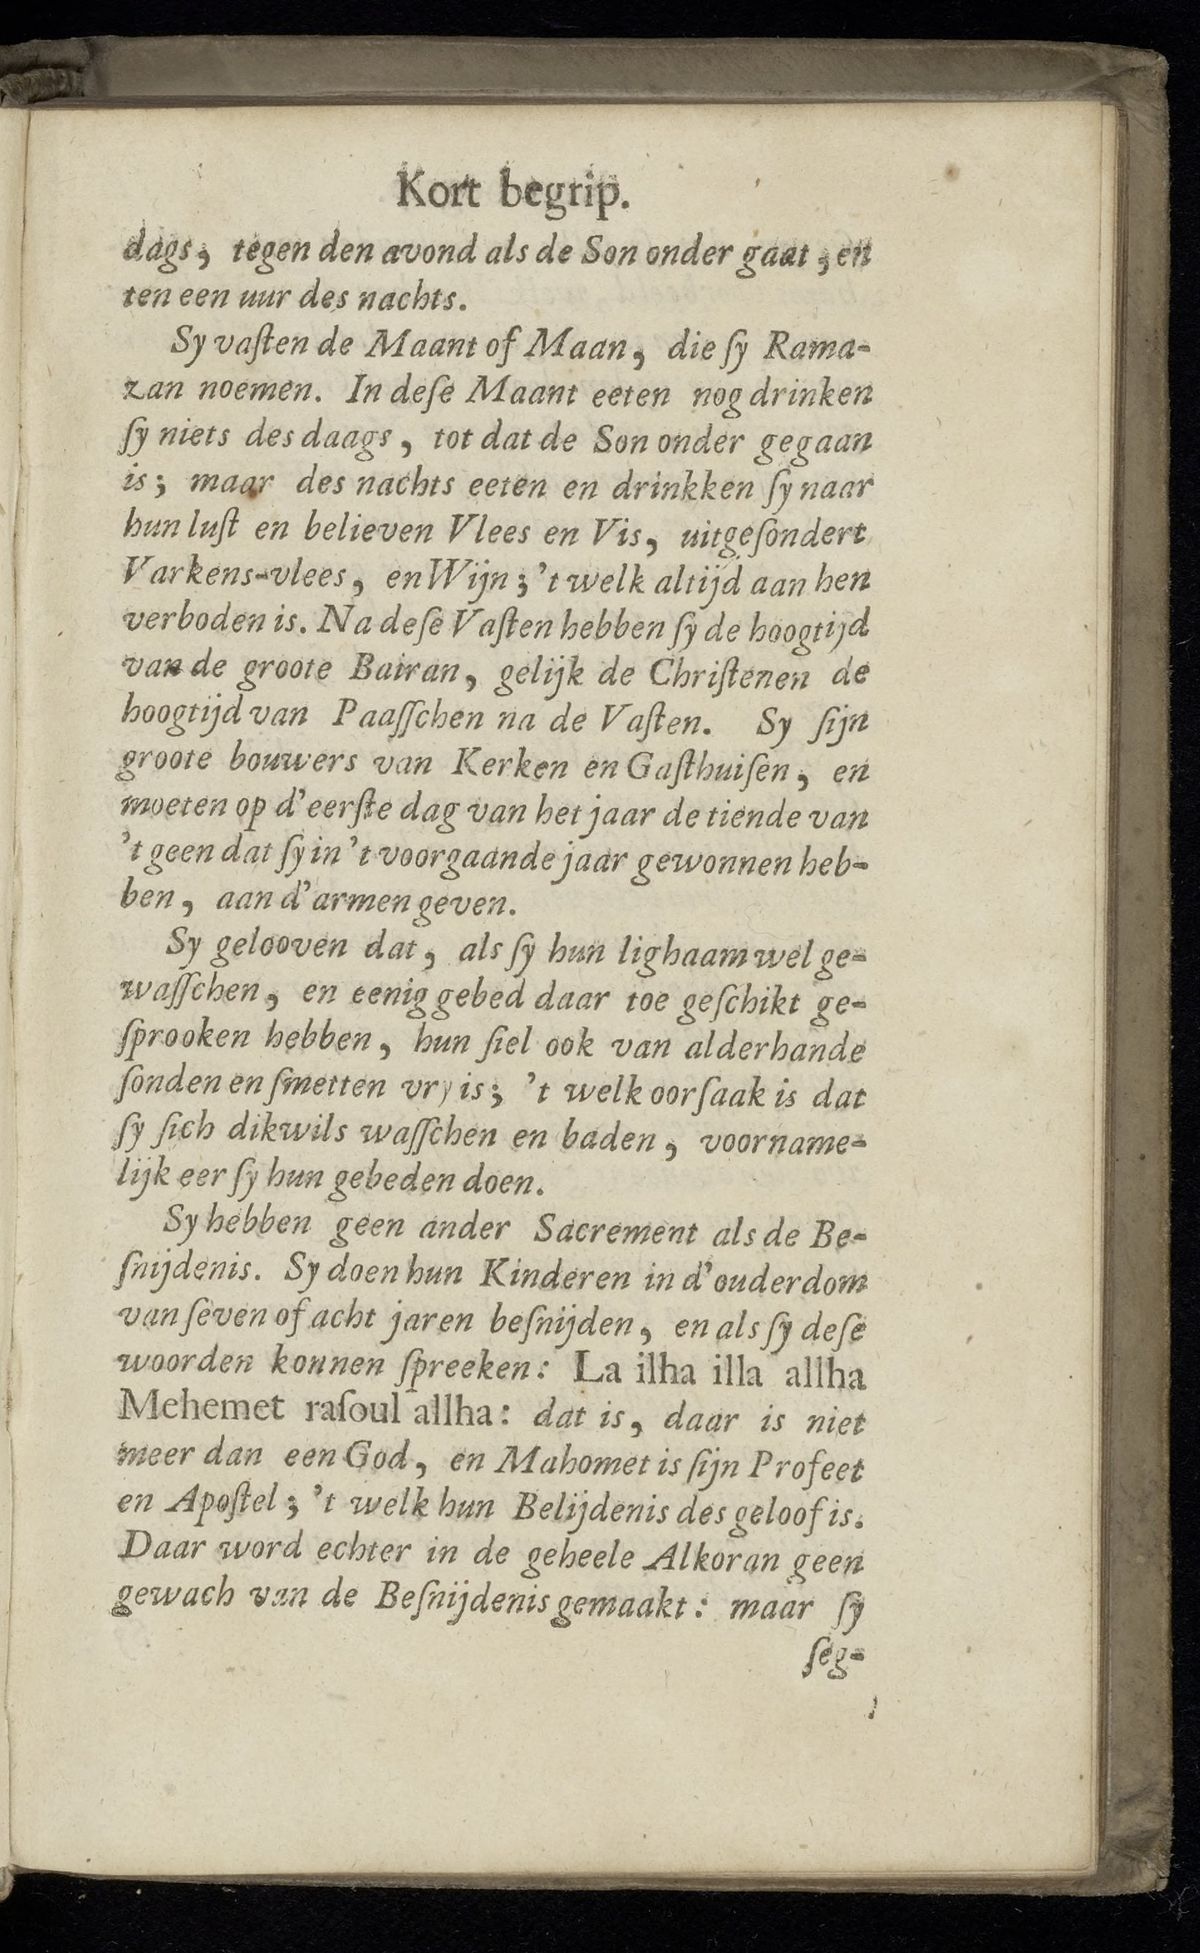 Kort begrip.
dags, tegen den avond als de Son onder gaat, en
ten een uur des nachts.
Sy vaſten de Maant of Maan, die ſy Rama-
zan noemen. In deſe Maant eeten nog drinken
ſy niets des daags, tot dat de Son onder gegaan
is; maar des nachts eeten en drinkken ſy naar
hun luſt en believen Vlees en Vis, uitgeſondert
Varkens-vlees, en Wijn; 't welk altijd aan hen
verboden is. Na deſe Vaſten hebben ſy de hoogtijd
van de groote Bairan, gelijk de Chriſtenen de
hoogtijd van Paaſſchen na de Vaſten. Sy ſijn
groote bouwers van Kerken en Gaſthuiſen, en
moeten op d'eerſte dag van het jaar de tiende van
't geen dat ſy in 't voorgaande jaar gewonnen heb-
ben, aan d'armen geven.
Sy gelooven dat, als ſy hun lighaam wel ge-
waſſchen, en eenig gebed daar toe geſchikt ge-
ſprooken hebben, hun ſiel ook van alderhande
ſonden en ſmetten vry is; 't welk oorſaak is dat
ſy ſich dikwils waſſchen en baden, voorname-
lijk eer ſy hun gebeden doen.
Sy hebben geen ander Sacrement als de Be-
ſnijdenis. Sy doen hun Kinderen in d'ouderdom
van ſeven of acht jaren beſnijden, en als ſy deſe
woorden konnen ſpreeken: La ilha illa allha
Mehemet raſoul allha: dat is, daar is niet
meer dan een God, en Mahomet is ſijn Profeet
en Apoſtel; 't welk hun Belijdenis des geloof is.
Daar word echter in de geheele Alkoran geen
gewach van de Beſnijdenis gemaakt: maar ſy
ſeg-